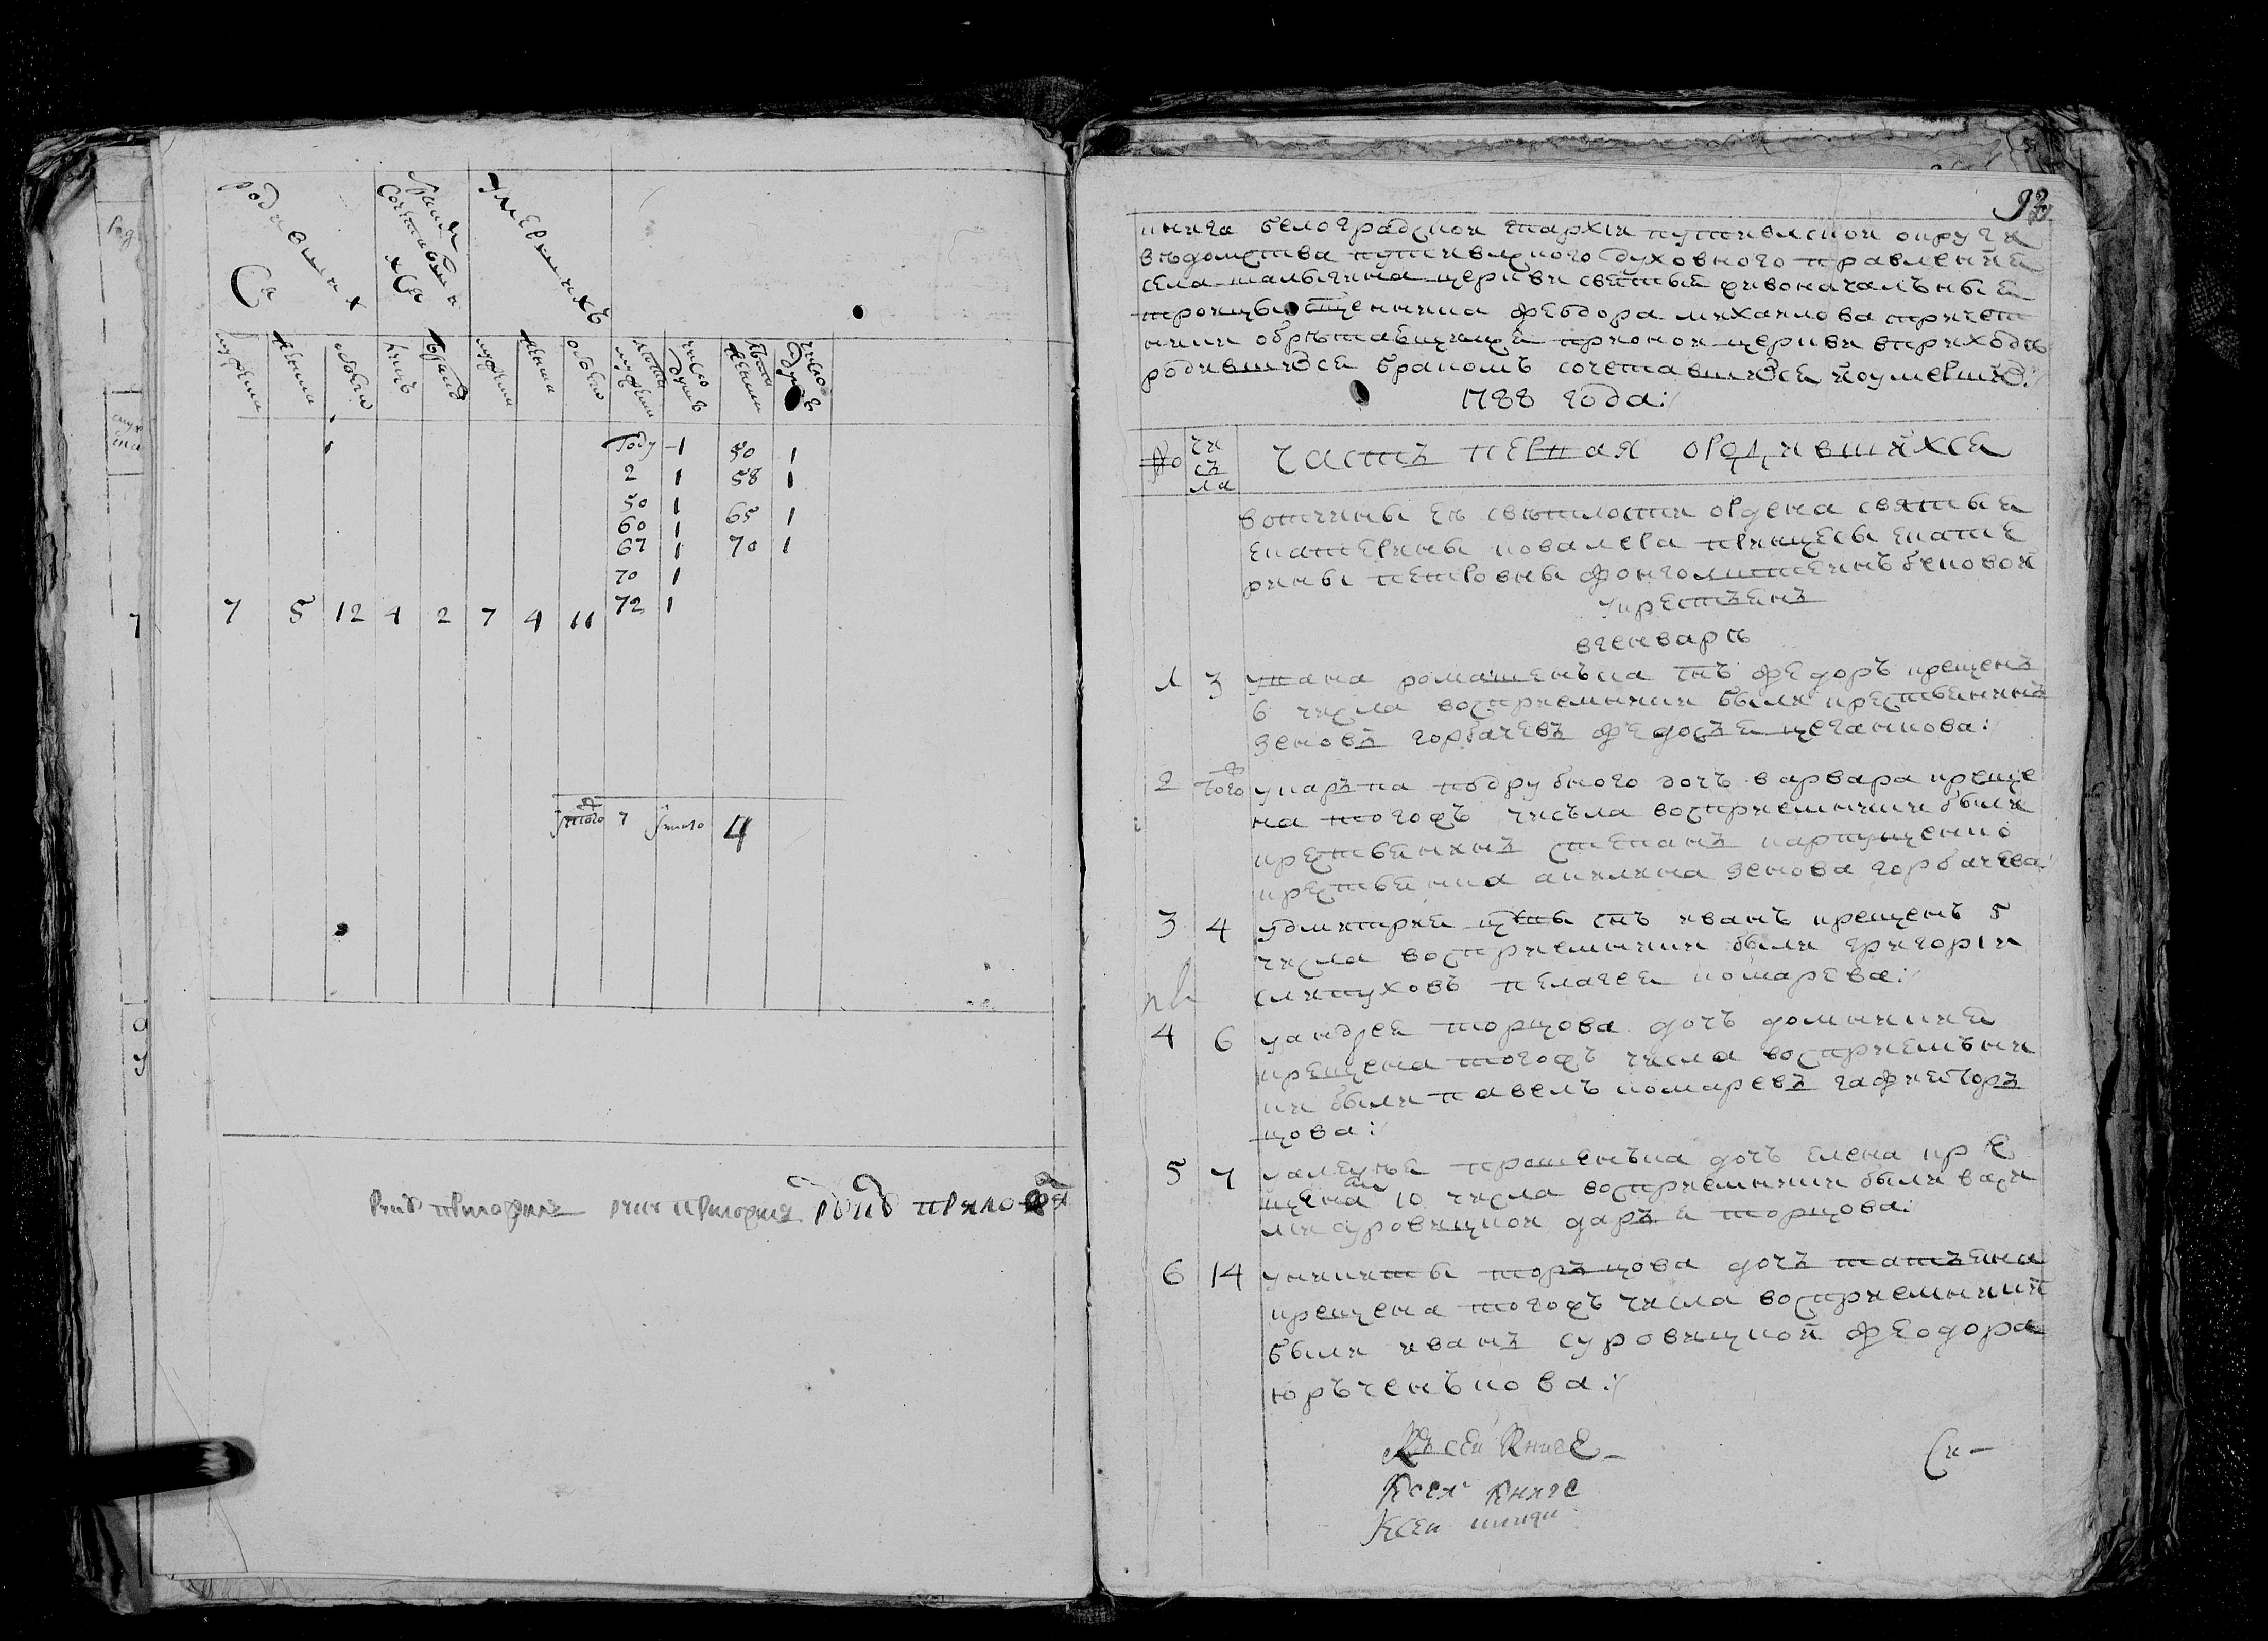 родившихъ
Ся
браком
Сочетавши
хся
умершихъ
мужеска
женска
обоего
мужеска
женска
обоего
числодушъ
году 1 50 1
2 1 58 1
50 1 65 1
60 1 70 1
67 1
70 1
72 1
7 5 12 4 2 7 4 11
Итого 7 Итого 4
92
книга белоградской епархіи путивлской округи
вѣдомства путивлского духовного правления
села малыгина церкви святые живоначалъные
троицы сщенника феѡдора михаилова спричет
ники обрѣтающищся прионой церкви вприходѣ
родившихся бракомъ сочетавшихся иоумершихъ:/
1788 года:/
№ чи
съ
ла
частъ первая ородившихся
вотчины ея свѣтлости ордена святые
екатерины ковалера принцесы екате
рины петровны фонголштеинъбековой
укрестъянъ
вгенварѣ
1 3 умана ромашенъка снъ федоръ крещенъ
6 числа восприемники были крестьянинъ
зеновъ горбачевъ федосъя цеганкова:/
2 того укаръпа подрубного дочъ варвара креще
на тогожъ чисъла восприемники были
крестьянинъ степанъ карпущенко
крестьянка акилина зенова горбачева:/
3 4 удмитрея снъ иванъ крещенъ 5
числа восприемники были григоріи
слипуховъ пелагея комарева:/
4 6 уандрея торцова дочъ домникия
крещена тогожъ числа восприемъни
ки были павелъ комаревъ гафия тор
цова:/
5 7 уалеуѣе прошенъка дочъ елена кре
щена 10 числа восприемники были васи
лии суровицкой даръя торцова:/
6 14 уникиты торъцова дочъ татъяна
крещена тогожъ числа восприемники
были иванъ суровицкой феодора
юръченъкова:/
Къ сеи Книге
Ксеи Книге
Ксеи